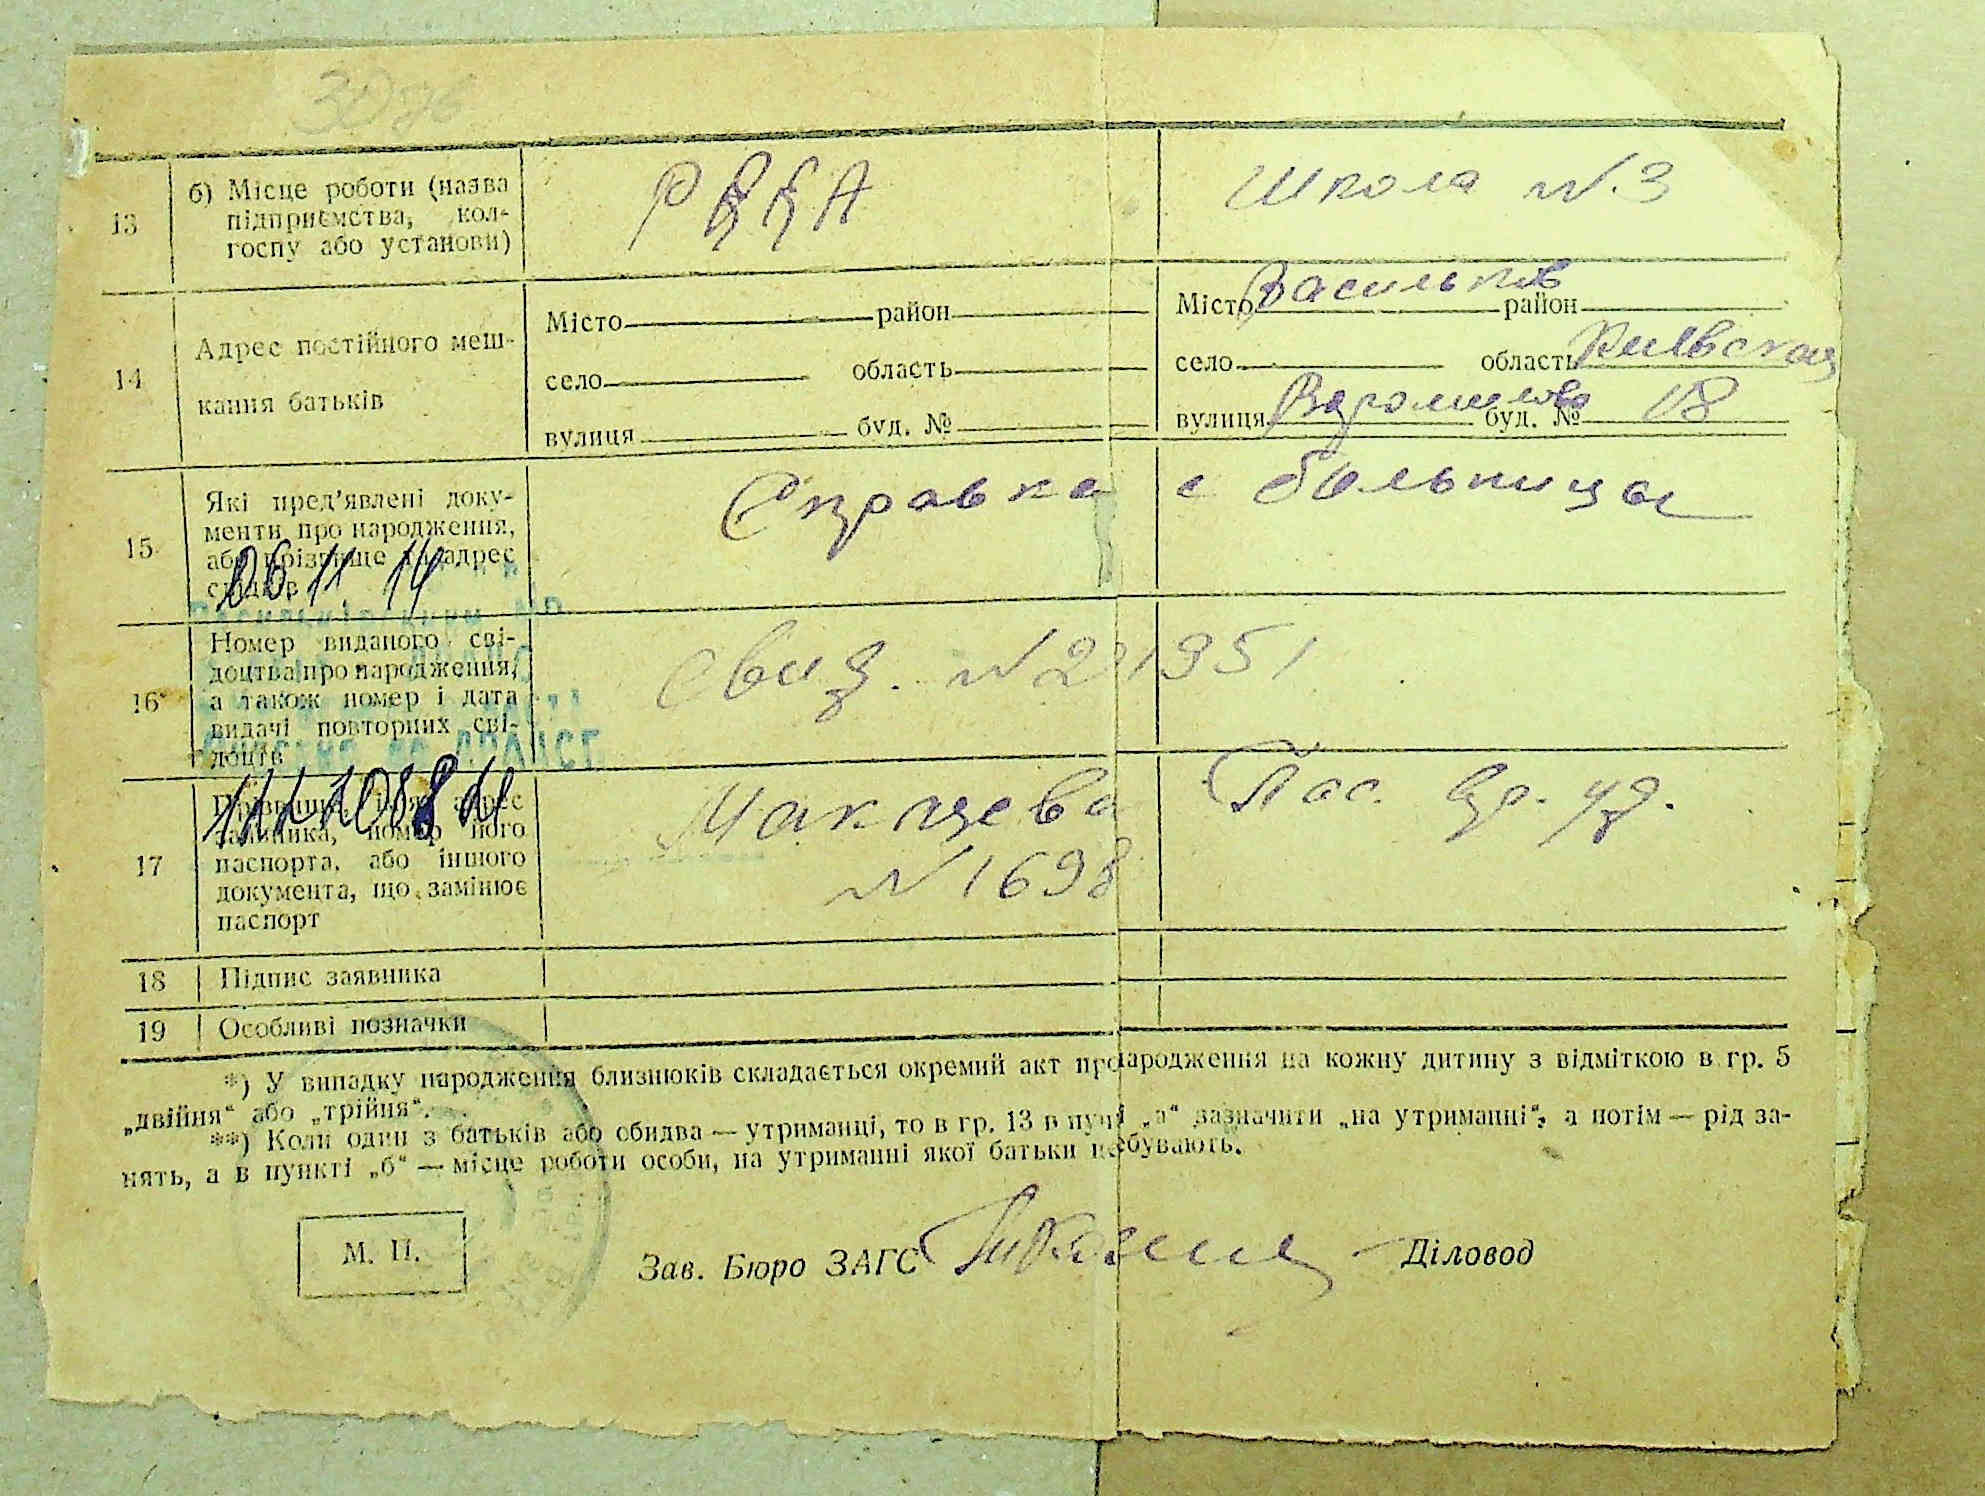 13
б) Місце роботи (назва
підприємства, кол-
госпу або установи)
РККА
Школа №.3
14
Адрес постійного меш-
кання батьків
Місто район
село область
вулиця буд. №
Місто Васильков район
село область Киевская
вулиця Ворошилова буд. № 18
15
Які пред'явлені доку-
менти про народження,
або прізвище та адрес
свідків
Справка с больницы
06 11 14
16
Номер виданого сві-
доцтва про народження,
а також номер і дата
видачі повторних сві-
доцтв
свид. №
17
Прізвище, ім'я, адрес
заявника, номер його
паспорта, або іншого
документа, що замінює
паспорт
№ 1698
18 Підпис заявника
19 Особливі позначки
*) У випадку народження близнюків складається окремий акт про народження на кожну дитину з відміткою в гр. 5
„двійня“ або „трійня“.
**) Коли один з батьків або обидва — утриманці, то в гр. 13 в пункті „а“ зазначити „на утриманні“, а потім — рід за-
нять, а в пункті „б“ — місце роботи особи, на утриманні якої батьки перебувають.
М. П.
Зав. Бюро ЗАГС
Діловод